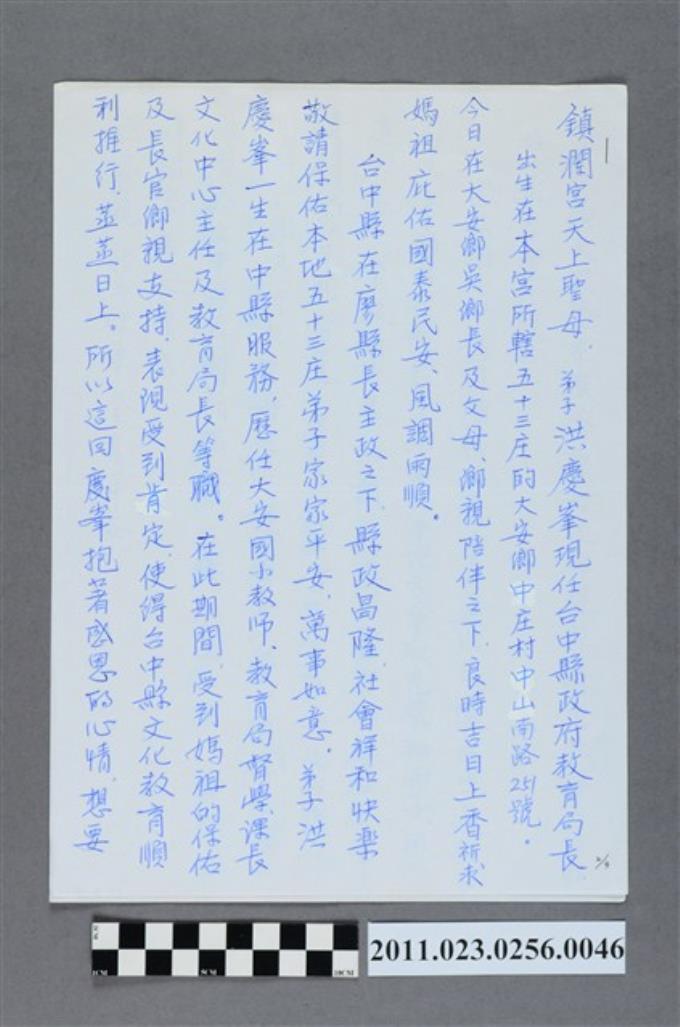 鎮瀾宮天上聖母．弟子洪慶峯現任台中縣政府教育局長
出生在本宮所轄五十三庄的大安鄉中庄村中山南路251號。
今日在大安鄉吳鄉長及父母、鄉親陪伴之下、良時吉日上香祈求
媽祖庇佑國泰民安、風調雨順。
台中縣在廖縣長主政之下．縣政昌隆．社會祥和快樂
敬請保佑本地五十三庄弟子家家平安．萬事如意．弟子洪
慶峯一生在中縣服務．歷任大安國小教師、教育局督學、課長
文化中心主任及教育局長等職。在此期間．受到媽祖的保佑
及長官鄉親支持．表現受到肯定．使得台中縣文化教育順
利推行．蒸蒸日上。所以這回慶峯抱著感恩的心情．想要
0CM
5CM
10CM
2011.023.0256.0046